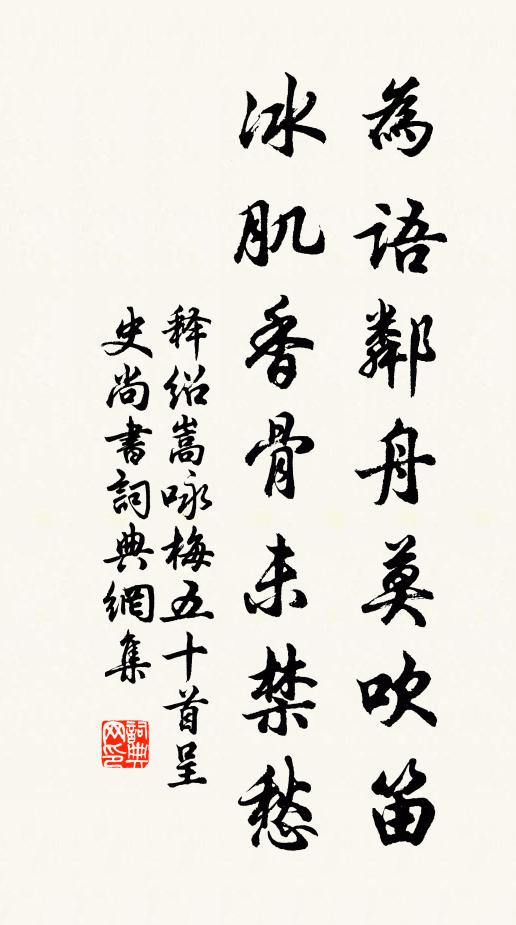 為語鄰舟莫吹笛
冰肌香骨未禁愁
释绍嵩咏梅五十首呈
史尚書詞典網集
詞典网印